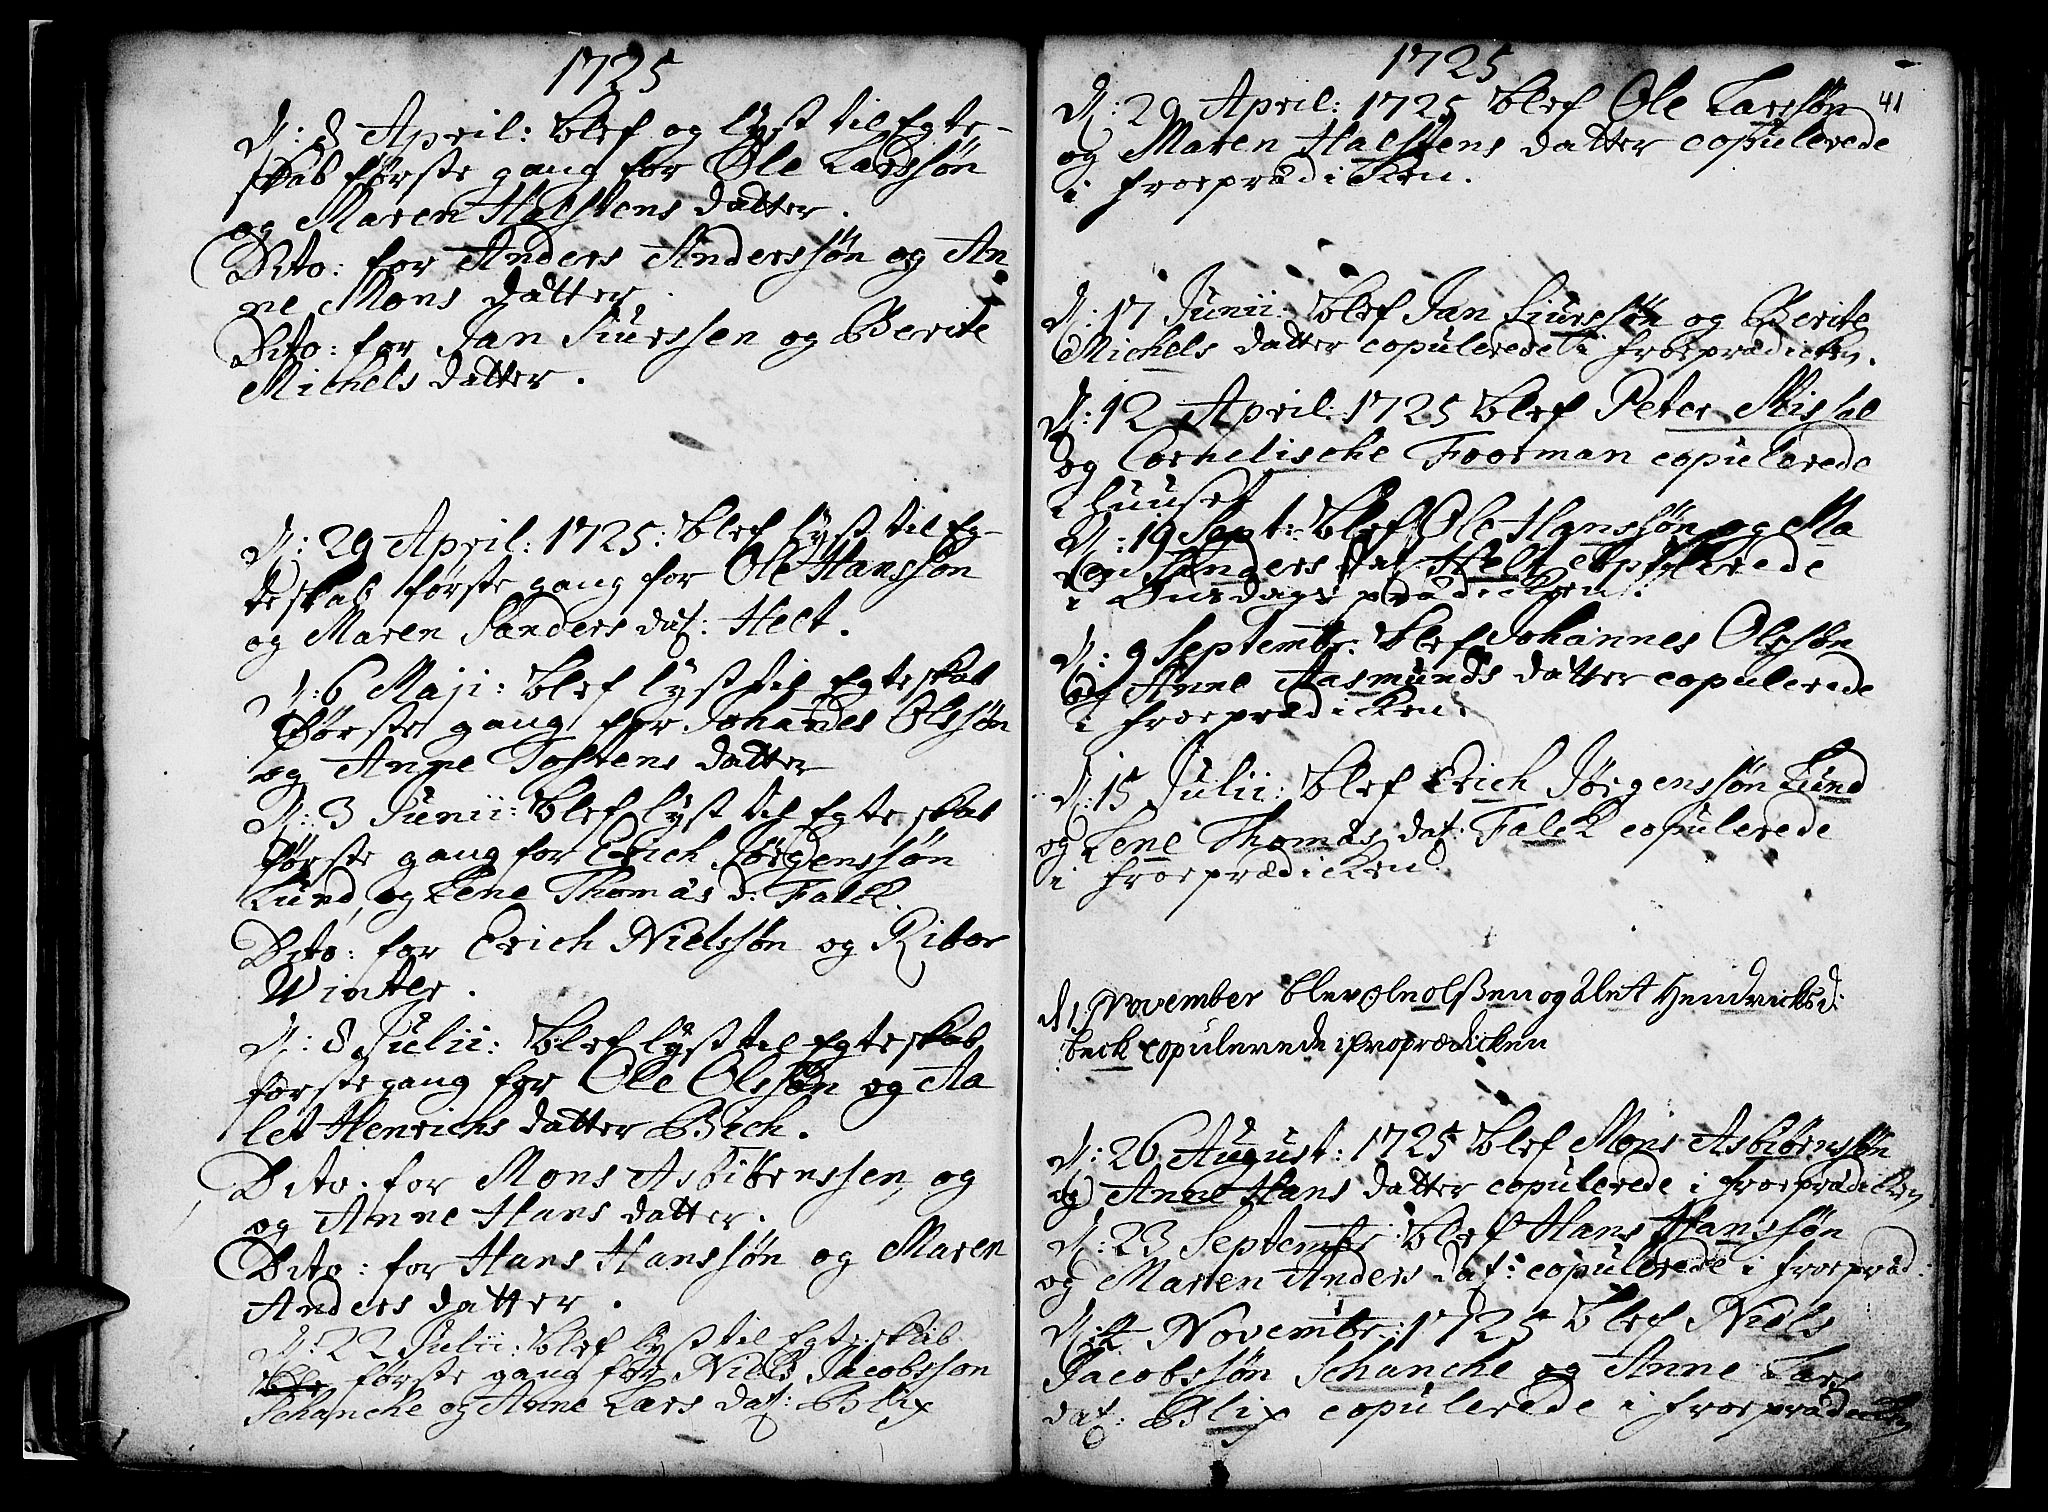 1725
D: 8 April: blef og lyst til Egte-
skab første gang for Ole Larssøn
og Maren Halstens datter.
Dito: for Anders Anderssøn og An
ne Mons datter.
Dito: for Jan Siurssen og Berite
Michels datter.
D: 29 April: 1725: blef lyst til Eg-
teskab første gang for Ole Hanssøn
og Maren Sanders dat: Helt.
D: 6 Maji: blef lyst til Egteskab
første gang for Johannes Olssøn
og Anne Tostens datter
D: 3 Junii: blef lyst til Egteskab
første gang for Erich Jørgenssøn
Lund, og Lene Thomas d: Falck.
Dito: for Erich Nielssøn og Ribor
Winter.
D: 8 Julii: blef lyst til Egteskab
første gang for Ole Olssøn og Aa
let Henrichs datter Bech.
Dito: for Mons Asbiørnssen, og
og Anne Hans datter.
Dito: for Hans Hanssøn og Maren
Anders datter.
D: 22 Julii: blef lyst til Egteskab
første gang for Niels Jacobsson
Schanche og Anne Lars dat: Blix
1725
41
D: 29 April: 1725 blef Ole Larssøn
og Maren Halstens datter copulerede
i froeprædicken.
D: 17 Junii: blef Jan Siurssøn og Berite
Michels datter copulerede i froeprædicken.
D: 12 April: 1725 blef Peter
og Cornelische Foorman copulerede
i Huuset
D: 19 Sept: blef Ole Hanssøn og Ma
ren Sanders dat Helt copulerede
i Onsdags prædicken.
D: 9 Septembr: blef Johannes Olssøn
og Anne Aasmunds datter copulerede
i froeprædicken.
D: 15 Julii: blef Erich Jørgenssøn Lund
og Lene Thomas dat: Falck copulerede
i froeprædicken.
d 1 November blev ole olßen og alet Hendrichs d:
beck copulerede i froprædicken
D: 26 August: 1725 blef Mons Asbiørnsøn
og Anne Hans datter copulerede i froeprædicken
D: 23 Septembr: blef Hans Hanssøn
og Maren Anders dat: copulerede i froepræd:
D: Novembr: 1725 blef Niels
Jacobssøn Schanche og Anne Lars
dat: Blix copulerede i froeprædicken